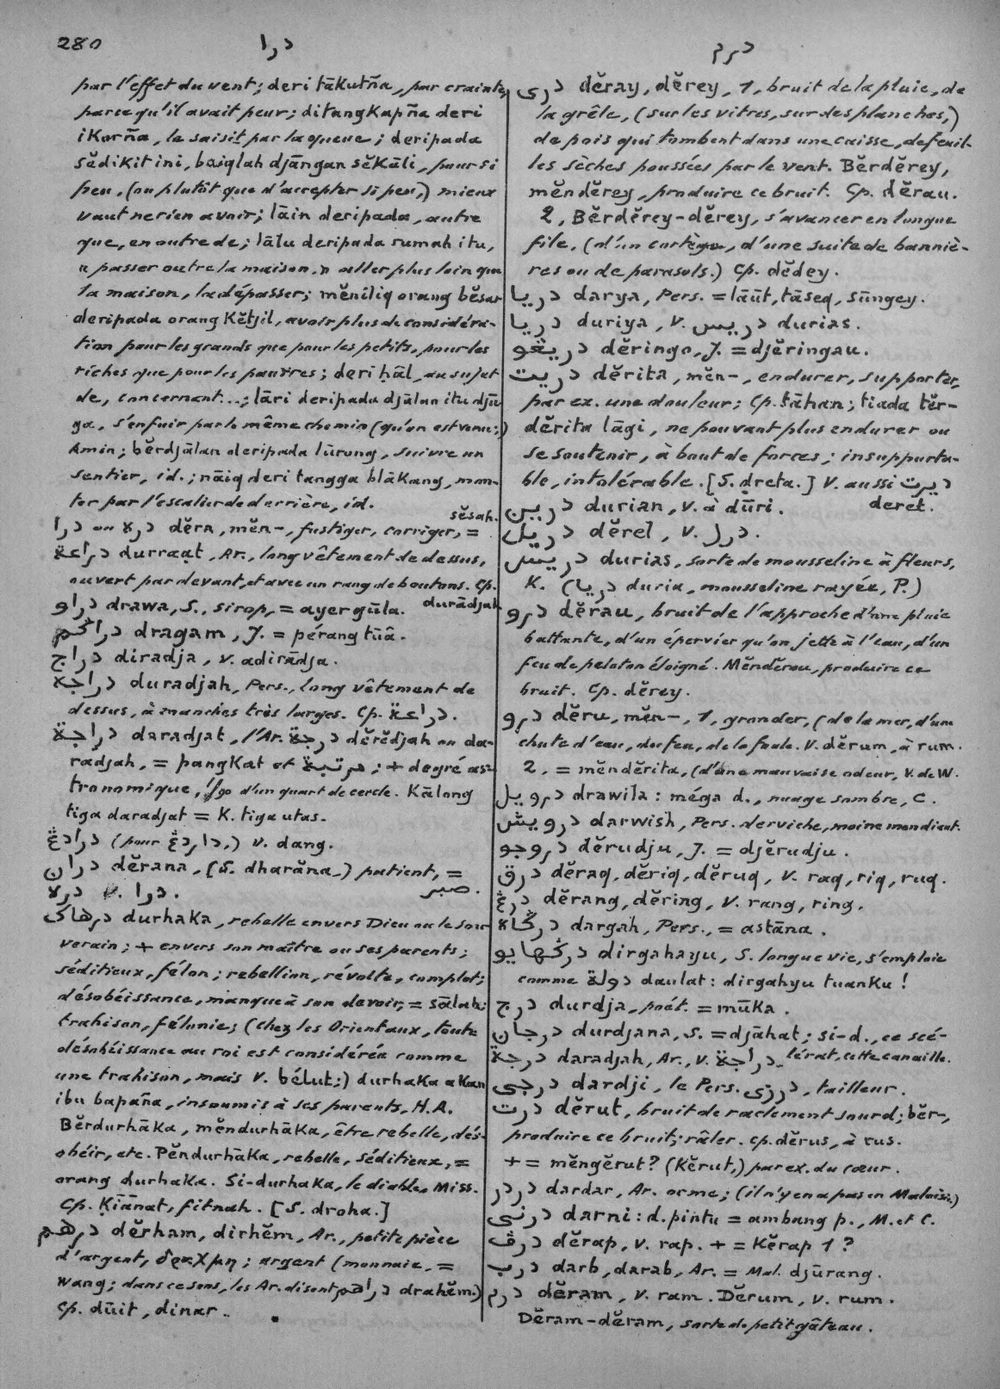 280
درا
درم
par l'effet du vent; deri tākutña, par crainte,
parce qu'il avait peur; ditangkapña deri
ikorña, le saisit par la queue; deripada
sĕdikit ini, baiqlah djāngan sĕkāli, pour si
peu, (ou plutôt que d'accepter si peu,) mieux
vaut ne rien avoir; lāin deripada, autre
que, en outre de; lālu deripada rumah itu,
passer outre la maison, aller plus loin que
la maison, la dépasser; mĕniliq orang bĕsar
deripada orang kĕtjil, avoir plus de considéra-
tion pour les grands que pour les petits, pour les
riches que pour les pauvres; deri ḥāl, au sujet
de, concernant...; lāri deripada djālan itu djū
ga, s'enfuir par le même chemin (qu'on est venu;)
Amin; bĕrdjālan deripada lūrong, suivre un
sentier, id.; nāiq deri tangga blākang, mon-
ter par l'escalier de derrière, id.
درا ou دره dĕra, mĕn-, fustiger, corriger, = sĕsah.
دراعة durraꜥat, Ar., long vêtement de dessus,
ouvert par devant, et avec un rang de boutons. Cp. durādjah
دراو drawa, S., sirop, = ayer gūla.
دراڬم dragam, J. = pérang tūā.
دراج diradja, v. adirādja.
دراجه duradjah, Pers., long vêtement de
dessus, à manches très larges. Cp. دراعة.
دراجة daradjat, l'Ar. درجة dĕrĕdjah ou da-
radjah, = pangkat et مرتبة; + degré as-
tronomique, 1/90 d'un quart de cercle. Kālong
tiga daradjat = K. tiga utas.
درادڠ (pour داردڠ,) v. dang.
دران dĕrana, (S. dharāna,) patient, = صبر.
دره v. درا.
درهاک durhaka, rebelle envers Dieu ou le sou-
verain; + envers son maître ou ses parents;
séditieux, félon; rebellion, révolte, complot;
désobéissance, manque à son devoir, = sālah;
trahison, félonie; (chez les Orientaux, toute
désobéissance au roi est considérée comme
une trahison, mais v. bélut;) durhaka akan
ibu bapaña, insoumis à ses parents, H.A.
Bĕrdurhāka, mĕndurhāka, être rebelle, dés-
obéir, etc. Pĕndurhāka, rebelle, séditieux, =
orang durhaka. Si-durhaka, le diable, Miss.
Cp. Kīānat, fitnah. [S. droha.]
درهم dĕrham, dirhĕm, Ar., petite pièce
d'argent, δραχμη; argent (monnaie, =
wang; dans ce sens, les Ar. disent دراهم drahĕm.)
Cp. dūit, dinar.
دری dĕray, dĕrey, 1, bruit de la pluie, de
la grêle, (sur les vitres, sur des planches,)
de pois qui tombent dans une caisse, de feuil-
les sèches poussées par le vent. Bĕrdĕrey,
mĕndĕrey, produire ce bruit. Cp. dĕrau.
2, Bĕrdĕrey-dĕrey, s'avancer en longue
file, (d'un cortège, d'une suite de banniè-
res ou de parasols.) Cp. dĕdey.
دريا darya, Pers. = lāūt, tāseq, sūngey.
دريا duriya, v. دريس durias.
دريڠو dĕringo, J. = djĕringau.
دريت dĕrita, mĕn-, endurer, supporter,
par ex. une douleur; Cp. tāhan; tiada tĕr-
dĕrita lāgi, ne pouvant plus endurer ou
se soutenir, à bout de forces; insupporta-
ble, intolérable. [S. dreta.] V. aussi ديرت deret.
درين durian, v. à dūri.
دريل dĕrel, v. درل.
دريس durias, sorte de mousseline à fleurs,
K. (دريا duria, mousseline rayée, P.)
درو dĕrau, bruit de l'approche d'une pluie
battante, d'un épervier qu'on jette à l'eau, d'un
feu de peloton éloigné. Mĕndĕrau, produire ce
bruit. Cp. dĕrey.
درو dĕru, mĕn-, 1, gronder, (de la mer, d'une
chute d'eau, du feu, de la foule. V. dĕrum, à rum.
2, = mĕndĕrita, (d'une mauvaise odeur, V. de W.
درويل drawila: méga d., nuage sombre, C.
درويش darwish, Pers. derviche, moine mendiant.
دروجو dĕrudju, J. = djĕrudju.
درق dĕraq, dĕriq, dĕruq, v. raq, riq, ruq.
درڠ dĕrang, dĕring, v. rang, ring.
درڬاه dargah, Pers., = astāna.
درڬهايو dirgahayu, S. longue vie, s'emploie
comme دولة daulat: dirgahyu tuanku!
درج durdja, poét. = mūka.
درجان durdjana, S. = djāhat; si-d., ce scé-
lérat, cette canaille.
درجة daradjah, Ar., v. دراجة.
درجی dardji, le Pers. درزی, tailleur.
درت dĕrut, bruit de raclement sourd; bĕr-,
produire ce bruit; râler. cp. dĕrus, à rus.
+ = mĕngĕrut? (Kĕrut,) par ex. du cœur.
دردر dardar, Ar. orme; (il n'y en a pas en Malaisie.)
درنی darni: d. pintu = ambang p., M. et C.
درڤ dĕrap, v. rap. + = Kĕrap 1?
درب darb, darab, Ar. = Mal. djūrang.
درم dĕram, v. ram. Dĕrum, v. rum.
Dĕram-dĕram, sorte de petit gâteau.